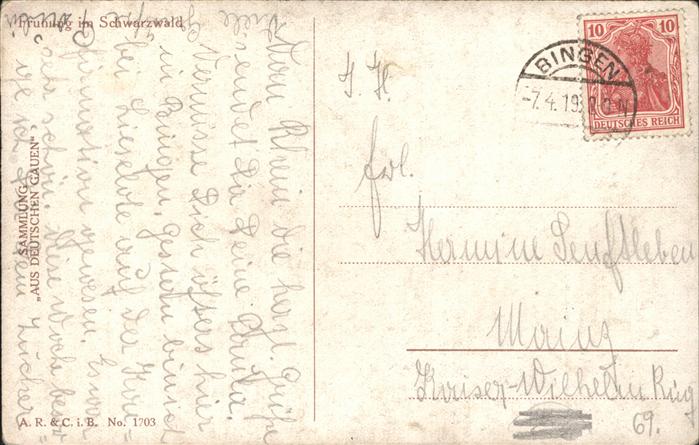 Frühling im Schwarzwald
SAMMLUNG
„AUS DEUTSCHEN GAUEN“
A. R. & C. i. B. No. 1703
Vom Rhein die herzl. Grüße
sendet Dir Deine Paula.
Vermisse Dich öfters hier
in Bingen. Gestern bin ich
bei Liselotte auf der Kon=
firmation gewesen. Es war
sehr schön. Diese Woche
10
10
DEUTSCHES REICH
BINGEN
-7.4.19
J. H.
Frl.
Hermine Senftleben
Mainz
Kaiser-Wilhelm Ring
69.